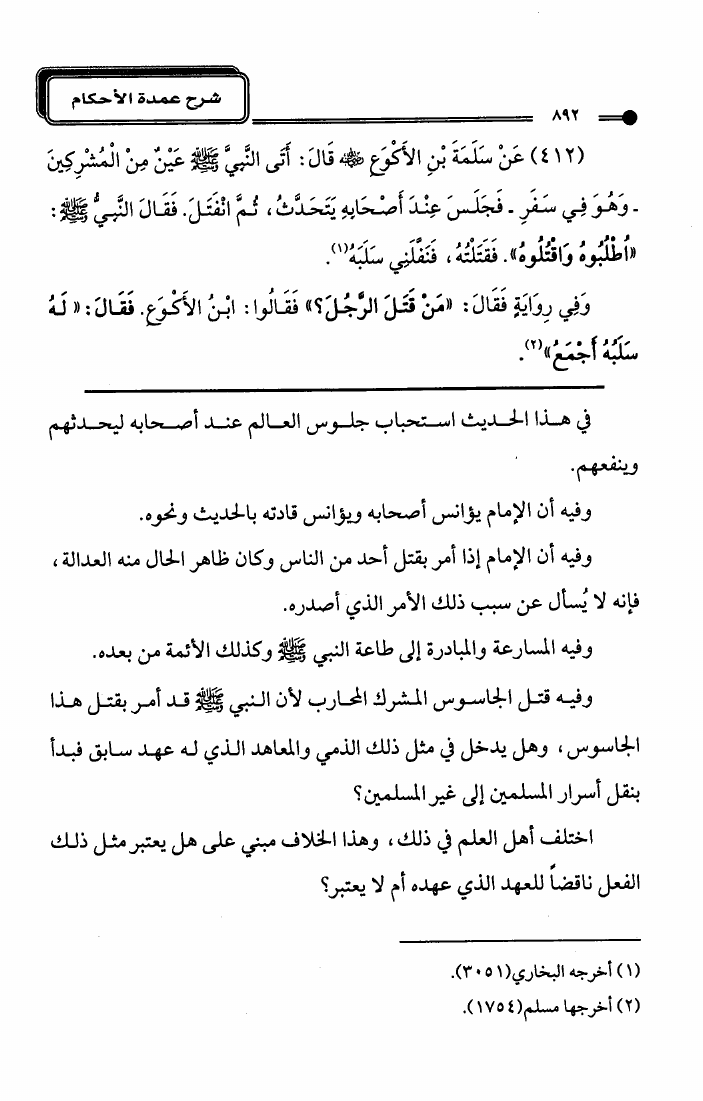 شرح عمدة الأحكام
٨٩٢
(٤١٢) عَنْ سَلَمَةَ بْنِ الأَكْوَعِ ﷺ قَالَ: أَتَى النَّبِيَّ ﷺ عَيْنٌ مِنْ الْمُشْرِكِينَ
ـ وَهُوَ فِي سَفَرٍ ـ فَجَلَسَ عِنْدَ أَصْحَابِهِ يَتَحَدَّثُ، ثُمَّ انْفَتَلَ. فَقَالَ النَّبِيُّ ﷺ:
«اُطْلُبُوهُ وَاقْتُلُوهُ». فَقَتَلْتُهُ، فَنَفَّلَنِي سَلَبَهُ(١).
وَفِي رِوَايَةٍ فَقَالَ: «مَنْ قَتَلَ الرَّجُلَ؟» فَقَالُوا: ابْنُ الأَكْوَعِ. فَقَالَ: «لَهُ
سَلَبُهُ أَجْمَعُ»(٢).
في هذا الحديث استحباب جلوس العالم عند أصحابه ليحدثهم
وينفعهم.
وفيه أن الإمام يؤانس أصحابه ويؤانس قادته بالحديث ونحوه.
وفيه أن الإمام إذا أمر بقتل أحد من الناس وكان ظاهر الحال منه العدالة،
فإنه لا يُسأل عن سبب ذلك الأمر الذي أصدره.
وفيه المسارعة والمبادرة إلى طاعة النبي ﷺ وكذلك الأئمة من بعده.
وفيه قتل الجاسوس المشرك المحارب لأن النبي ﷺ قد أمر بقتل هذا
الجاسوس، وهل يدخل في مثل ذلك الذمي والمعاهد الذي له عهد سابق فبدأ
بنقل أسرار المسلمين إلى غير المسلمين؟
اختلف أهل العلم في ذلك، وهذا الخلاف مبني على هل يعتبر مثل ذلك
الفعل ناقضاً للعهد الذي عهده أم لا يعتبر؟
(١) أخرجه البخاري(٣٠٥١).
(٢) أخرجها مسلم(١٧٥٤).